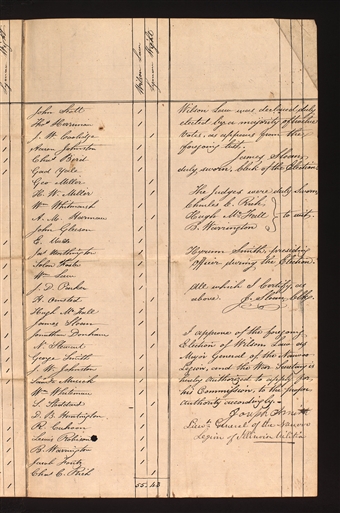 Lyman Wight
Wilson Law
Lyman Wight
John Hatt
Thos Harmon
J. W. Coolidge
Aaron Johnston
Chas Bird
Gad Yale
Geo Miller
H. W. Miller
Wm Whitmarsh
A. M. Harmon
John Gleason
E.
Jas Worthington
Wm Law
J. D. Parker
H. Omsted
Hugh McFall
James Sloan
Jonathan Dunham
N. Stewart
George Smith
J. W. Johnston
Wm Wightman
L. Stoddard
D. B. Huntington
R. Cahoon
Lewis Robison
B. Warrington
Jacob Foutz
Chas C. Rich
55. 43
Wilson Law was declared duly
elected by a majority of twelve
votes, as appears from the
foregoing list.
James Sloan,
duly sworn, clerk of the Election
The Judges were duly sworn
Charles C. Rich
Hugh McFall } to wit.
B. Warrington
Hyrum Smith, presiding
officer during the Election.
All which I Certify, as
above. J. Sloan, Clk.
I approve of the foregoing
Election of Wilson Law as
Major General of the Nauvoo
Legion, and the War Secretary is
hereby authorized to apply for
his Commission, to the proper
authority accordingly.
Joseph Smith
Lieut. General of the Nauvoo
Legion of Illinois Militia